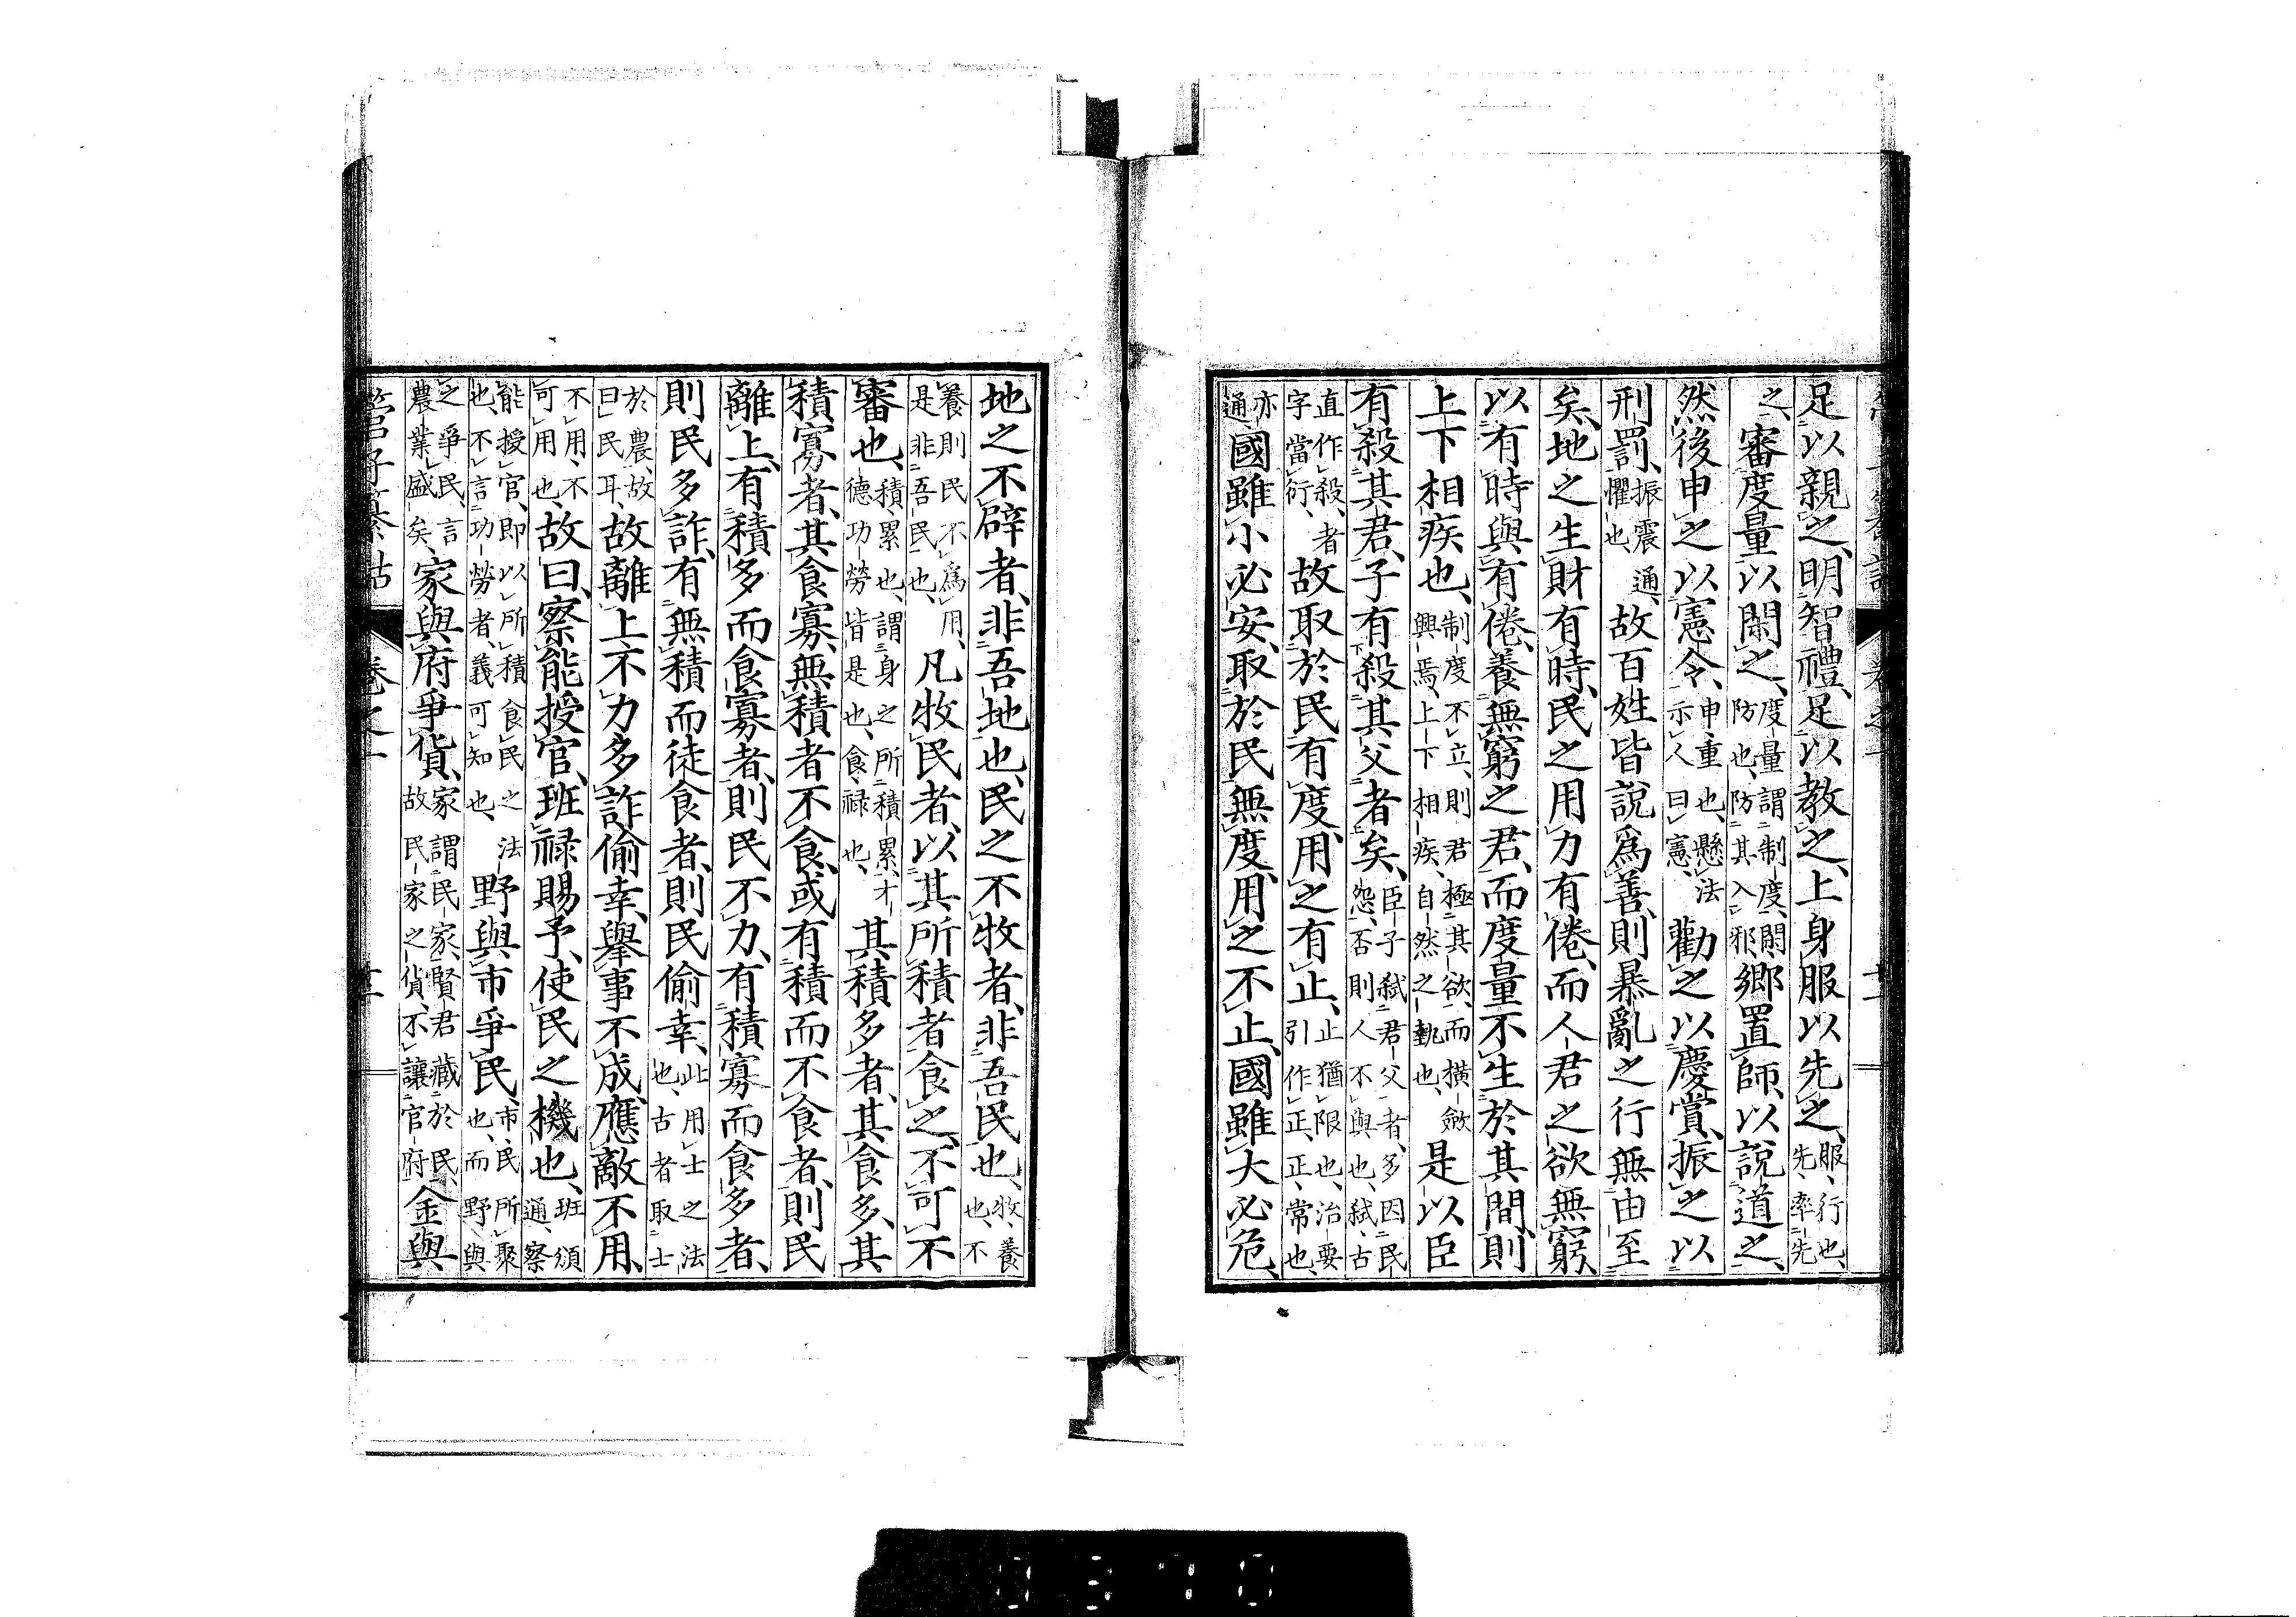 足以親之、明智禮、足以教之、上身服以先之、服、行也、先、率先
之、審度量以閑之、度量謂制度、閑防也、防其入邪、鄉置師、以說道之、
然後申之以憲令、申、重也、懸法示人曰憲、勸之以慶賞、振之以
刑罰、振震通、懼也、故百姓皆說爲善、則暴亂之行無由至
矣、地之生財有時、民之用力有倦、而人君之欲無窮、
以有時與有倦、養無窮之君、而度量不生於其間、則
上下相疾也、制度不立、則君極其欲、而橫斂興焉、上下相疾、自然之埶也、是以臣
有殺其君、子有殺其父者矣、臣子弒君父者、多因民怨、否則人不與也、弒、古
直作殺、者字當衍、故取於民有度、用之有止、止猶限也、治要引作正、正、常也、
亦通國雖小必安、取於民無度、用之不止、國雖大必危、
地之不辟者、非吾地也、民之不牧者、非吾民也、牧、養也、不
養則民不爲用、是非吾民也、凡牧民者、以其所積者食之、不可不
審也、積、累也、謂身之所積累、才德功勞皆是也、食、祿也、其積多者、其食多、其
積寡者、其食寡、無積者不食、或有積而不食者、則民
離上、有積多而食寡者、則民不力、有積寡而食多者、
則民多詐、有無積而徒食者、則民偷幸、此用士之法也、古者取士
於農、故曰民耳、故離上不力多詐偷幸、舉事不成、應敵不用、
不用、不可用也、故曰、察能授官、班祿賜予、使民之機也、班頒通、察
能授官、即以所積食民之法也、不言功勞者義可知也、野與市爭民、市、民所聚也、而野與
之爭民、言農業盛矣、家與府爭貨、家謂民家、賢君藏於民、故民家之貨、不讓官府、金與
管子纂詁 卷之一